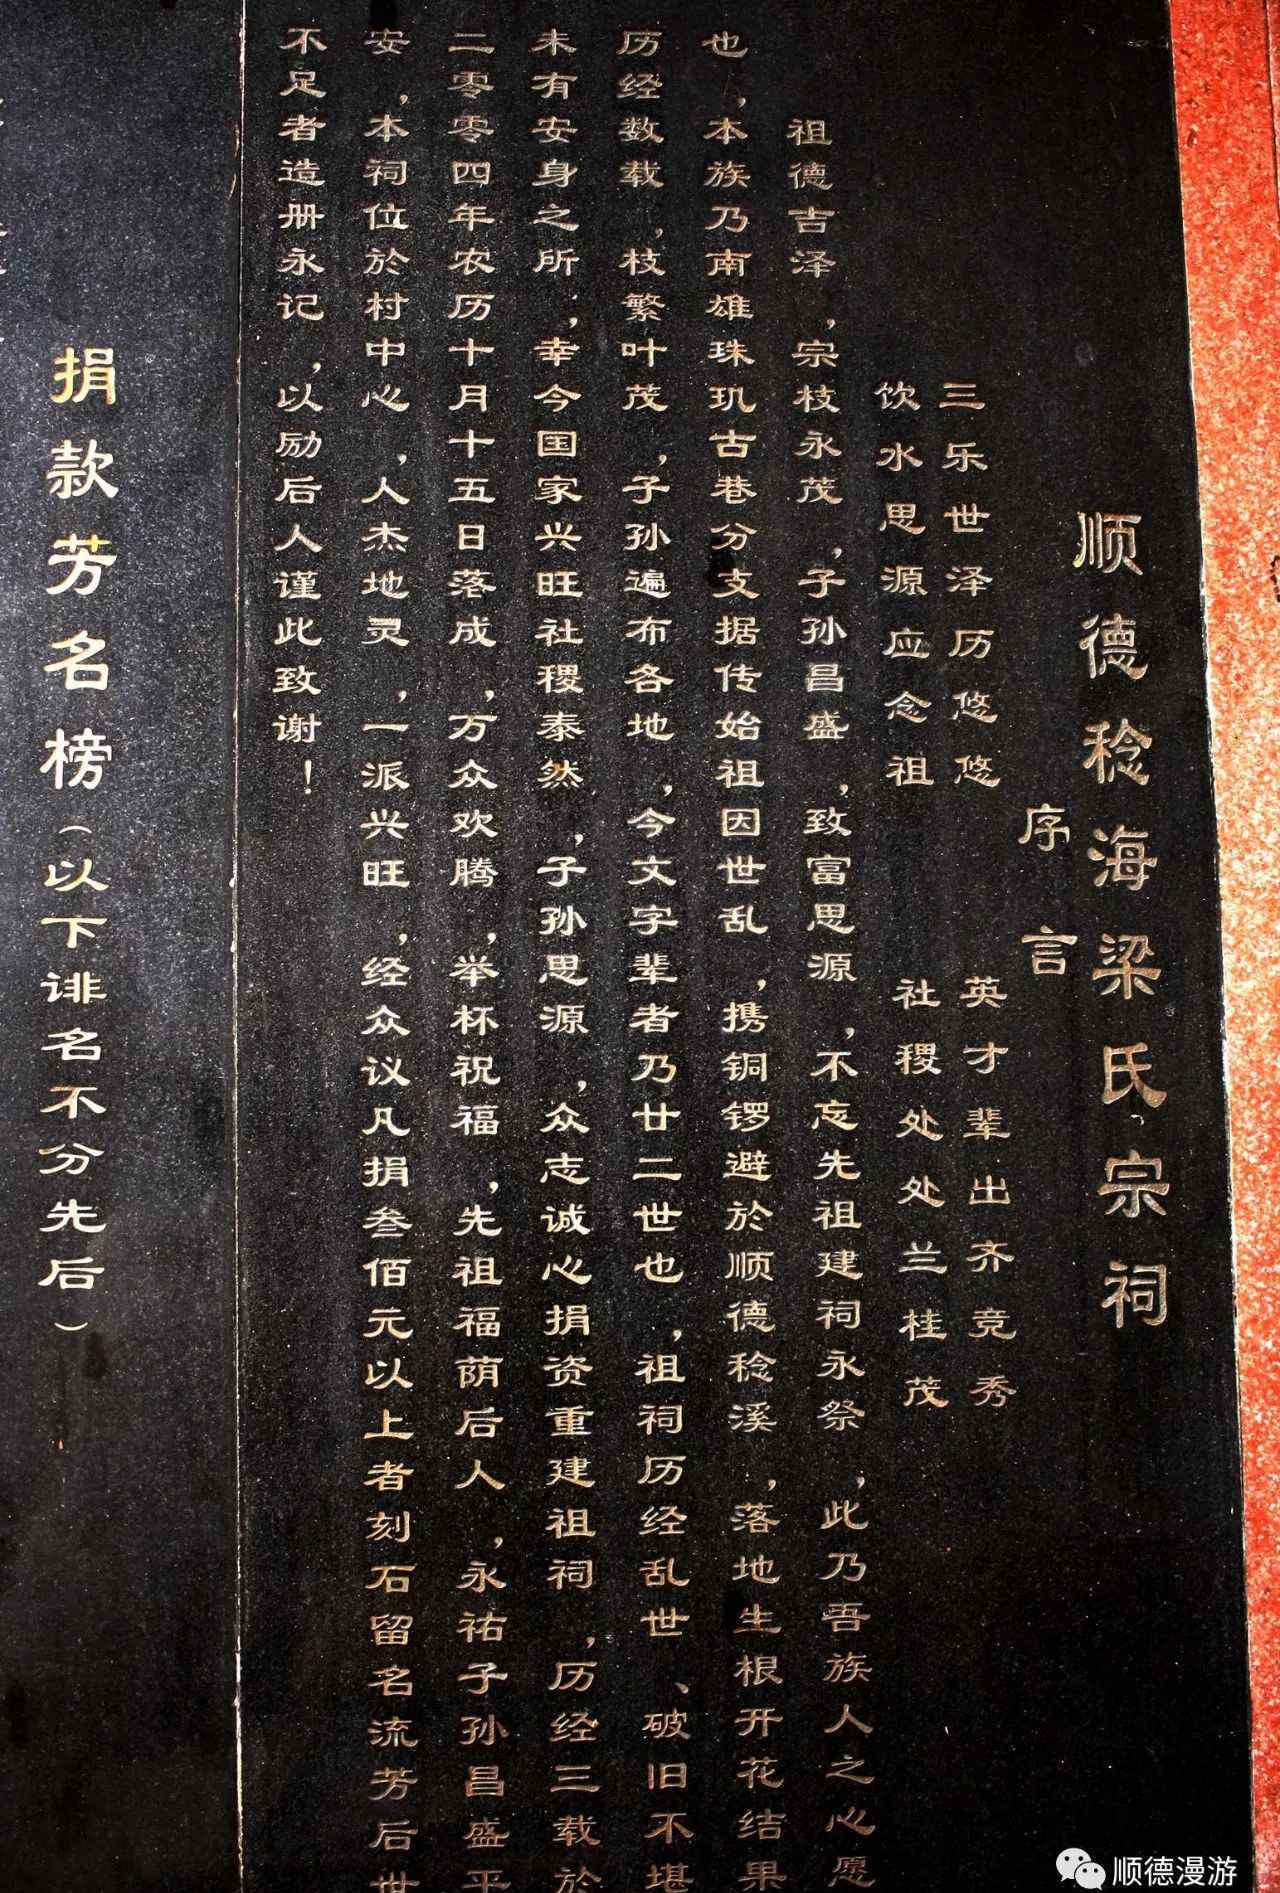 顺德稔海梁氏宗祠
序言
三乐世泽历悠悠　英才辈出齐竞秀
饮水思源应念祖　社稷处处兰桂茂
祖德吉泽，宗枝永茂，子孙昌盛，致富思源，不忘先祖建祠永祭，此乃吾族人之心愿
也，本族乃南雄珠玑古巷分支据传始祖因世乱，携铜锣避於顺德稔溪，落地生根开花结果
历经数载，枝繁叶茂，子孙遍布各地，今文字辈者乃廿二世也，祖祠历经乱世、破旧不堪
未有安身之所，幸今国家兴旺社稷泰然，子孙思源，众志诚心捐资重建祖祠，历经三载於
二零零四年农历十月十五日落成，万众欢腾，举杯祝福，先祖福荫后人，永祐子孙昌盛平
安，本祠位於村中心，人杰地灵，一派兴旺，经众议凡捐叁佰元以上者刻石留名流芳后世
不足者造册永记，以励后人谨此致谢！
捐款芳名榜（以下诽名不分先后）
顺德漫游